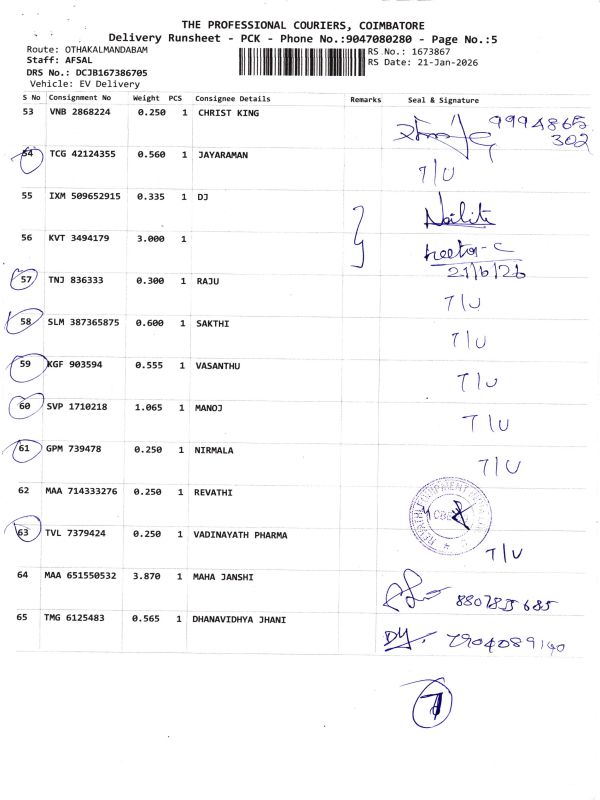 THE PROFESSIONAL COURIERS, COIMBATORE
Delivery Runsheet - PCK - Phone No.:9047080280 - Page No.:5
Route: OTHAKALMANDABAM RS No.: 1673867
Staff: AFSAL RS Date: 21-Jan-2026
DRS No.: DCJB167386705
Vehicle: EV Delivery
S No Consignment No Weight PCS Consignee Details Remarks Seal & Signature
53 VNB 2868224 0.250 1 CHRIST KING 9994865
302
54 TCG 42124355 0.560 1 JAYARAMAN T/U
55 IXM 509652915 0.335 1 DJ
56 KVT 3494179 3.000 1
57 TNJ 836333 0.300 1 RAJU T/U
58 SLM 387365875 0.600 1 SAKTHI T/U
59 KGF 903594 0.555 1 VASANTHU T/U
60 SVP 1710218 1.065 1 MANOJ T/U
61 GPM 739478 0.250 1 NIRMALA T/U
62 MAA 714333276 0.250 1 REVATHI
63 TVL 7379424 0.250 1 VADINAYATH PHARMA T/U
64 MAA 651550532 3.870 1 MAHA JANSHI
65 TMG 6125483 0.565 1 DHANAVIDHYA JHANI 7904089140
7